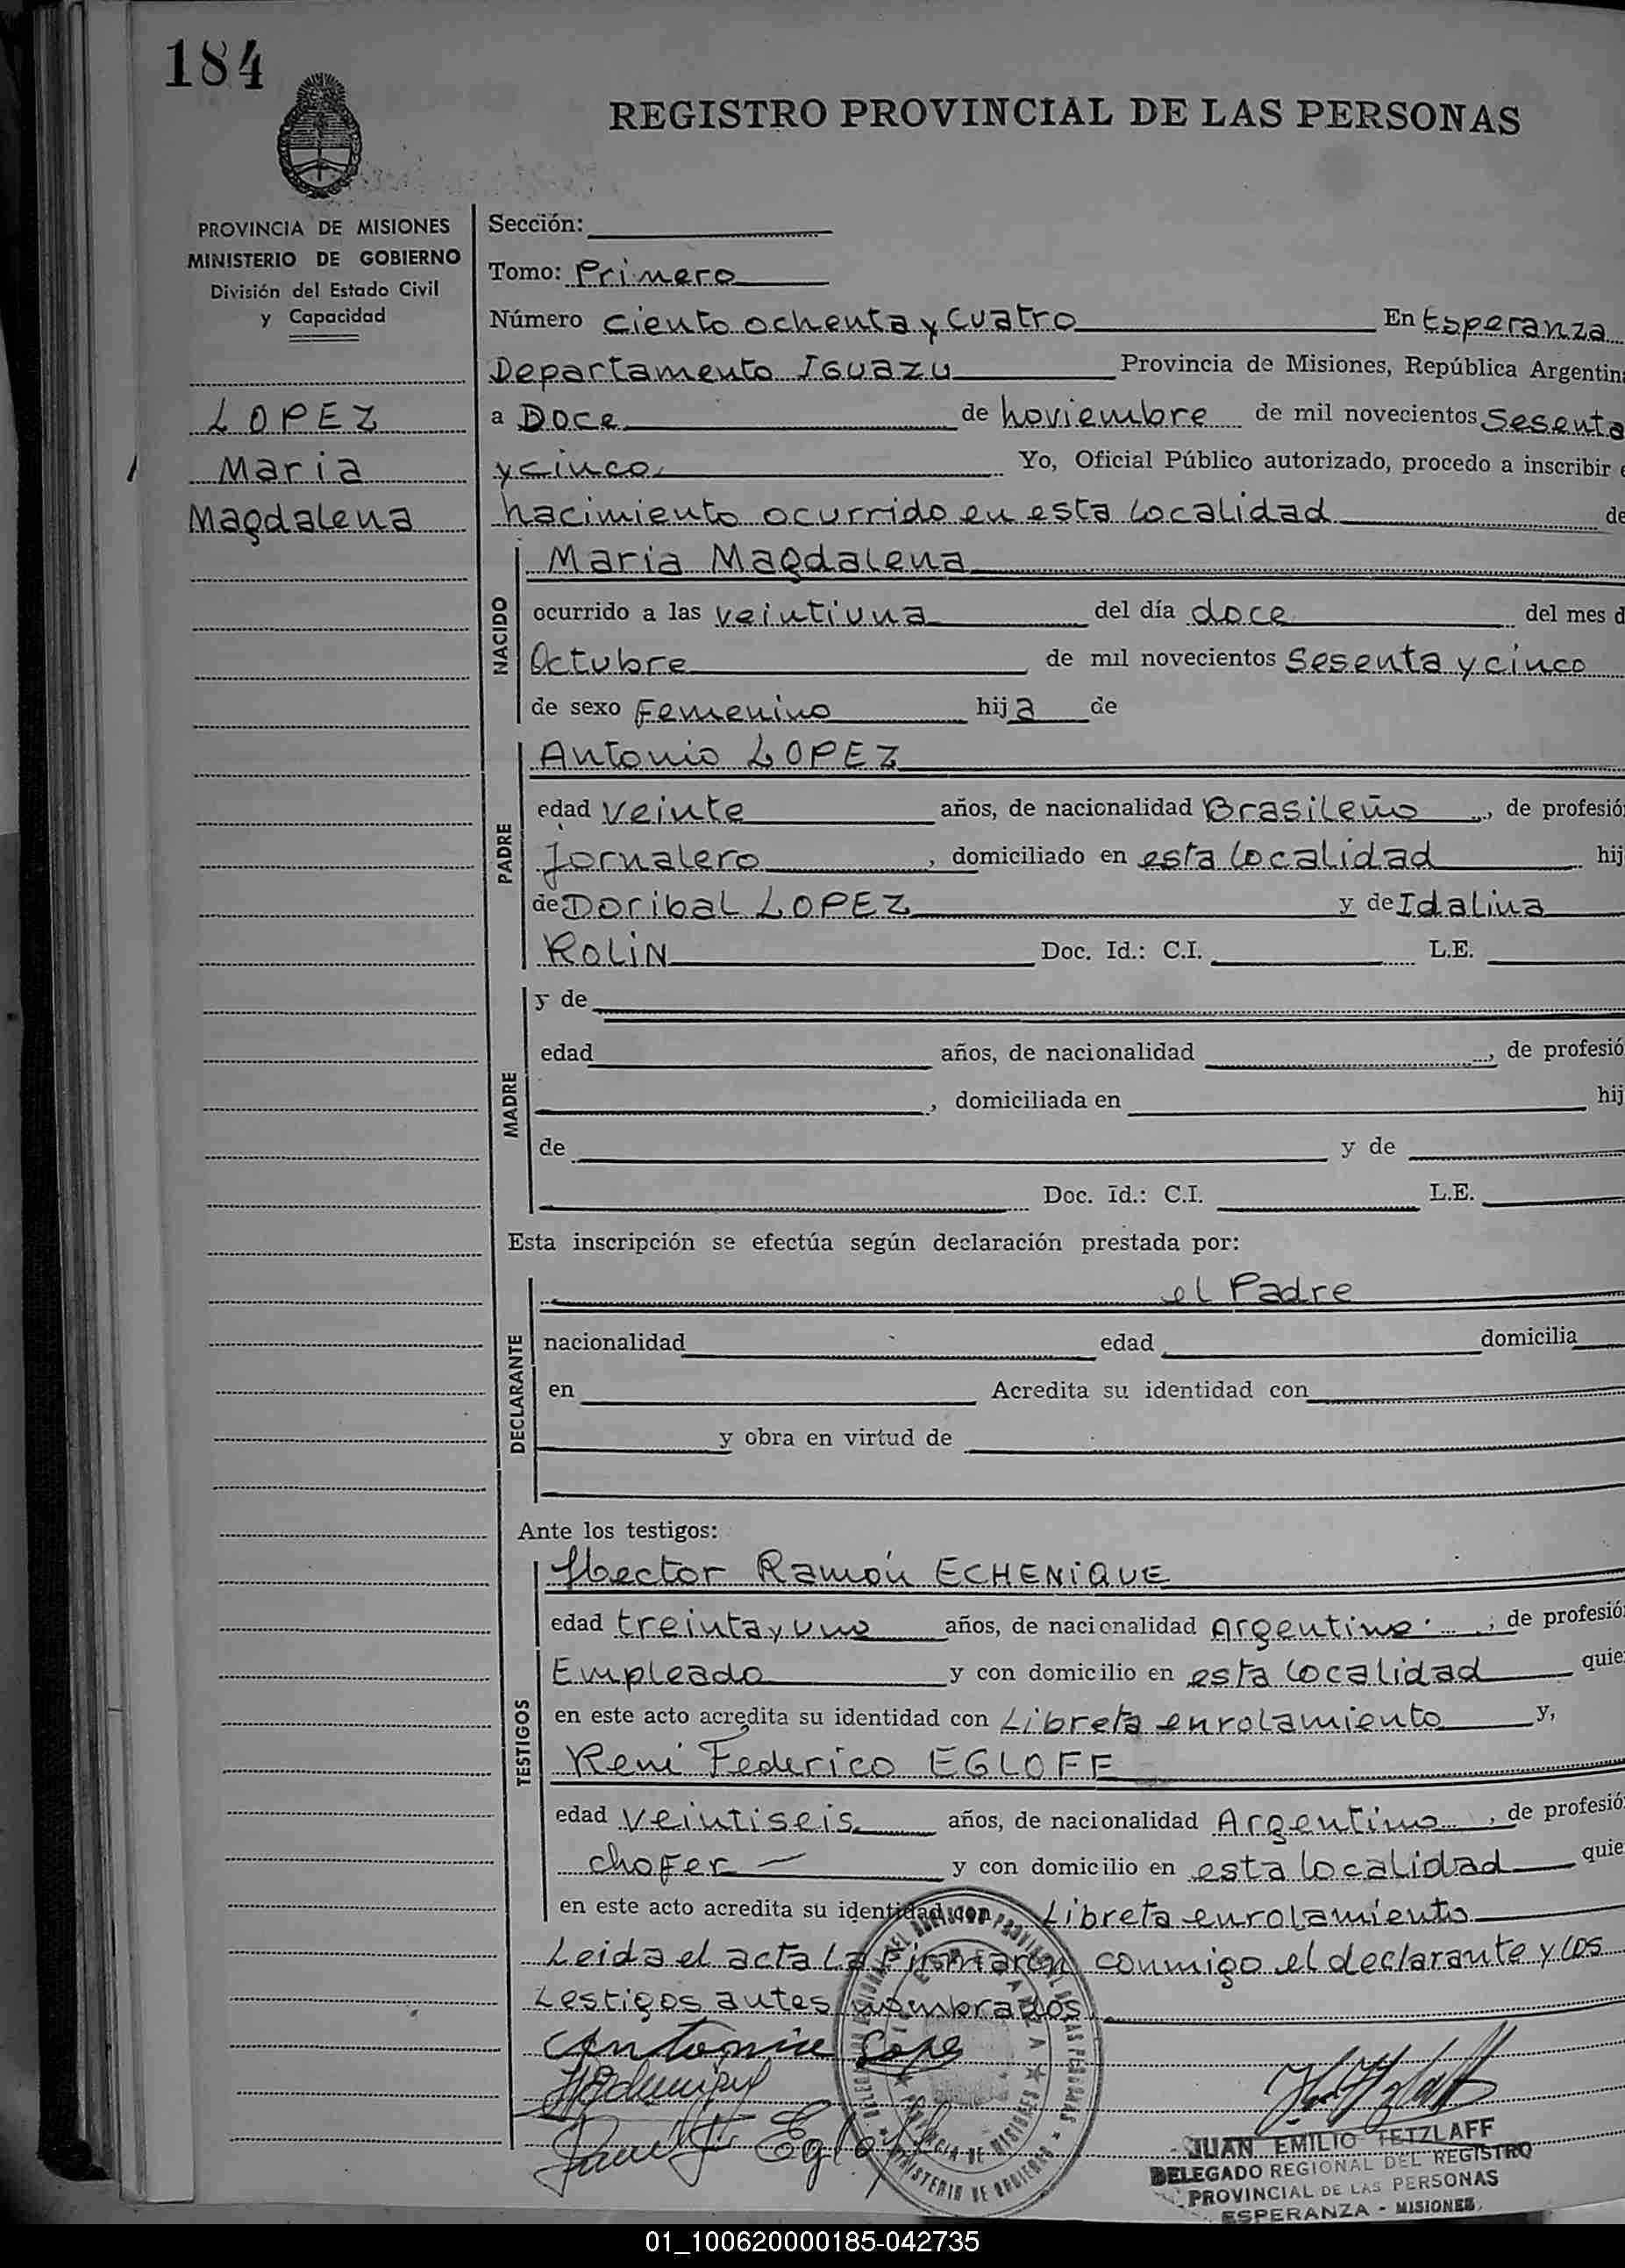 184
REGISTRO PROVINCIAL DE LAS PERSONAS
PROVINCIA DE MISIONES
MINISTERIO DE GOBIERNO
División del Estado Civil
y Capacidad
LOPEZ
Maria
Magdalena
Sección:
Tomo: Primero
Número ciento ochenta y cuatro En Esperanza
Departamento IGUAZU Provincia de Misiones, República Argentin
a Doce de noviembre de mil novecientos Sesenta
y cinco Yo, Oficial Público autorizado, procedo a inscribir e
nacimiento ocurrido en esta localidad de
NACIDO
Maria Magdalena
ocurrido a las veintiuna del día doce del mes d
Octubre de mil novecientos Sesenta y cinco
de sexo Femenino hija de
PADRE
Antonio LOPEZ
edad veinte años, de nacionalidad Brasileño, de profesió
Jornalero, domiciliado en esta localidad hij
de Doribal LOPEZ y de Idalina
ROLIN Doc. Id.: C.I. L.E.
MADRE
y de
edad años, de nacionalidad , de profesió
, domiciliada en hij
de y de
Doc. Id.: C.I. L.E.
Esta inscripción se efectúa según declaración prestada por:
DECLARANTE
el Padre
nacionalidad edad domicilia
en Acredita su identidad con
y obra en virtud de
Ante los testigos:
TESTIGOS
Hector Ramón ECHENIQUE
edad treinta y uno años, de nacionalidad Argentino, de profesió
Empleado y con domicilio en esta localidad quie
en este acto acredita su identidad con Libreta enrolamiento y,
René Federico EGLOFF
edad veintiseis años, de nacionalidad Argentino, de profesió
chofer y con domicilio en esta localidad quie
en este acto acredita su identidad con Libreta enrolamiento
Leida el acta la firmaron conmigo el declarante y los
testigos antes nombrados
Antonio Lope
JUAN EMILIO TETZLAFF
DELEGADO REGIONAL DEL REGISTRO
PROVINCIAL DE LAS PERSONAS
ESPERANZA - MISIONES
01_100620000185-042735